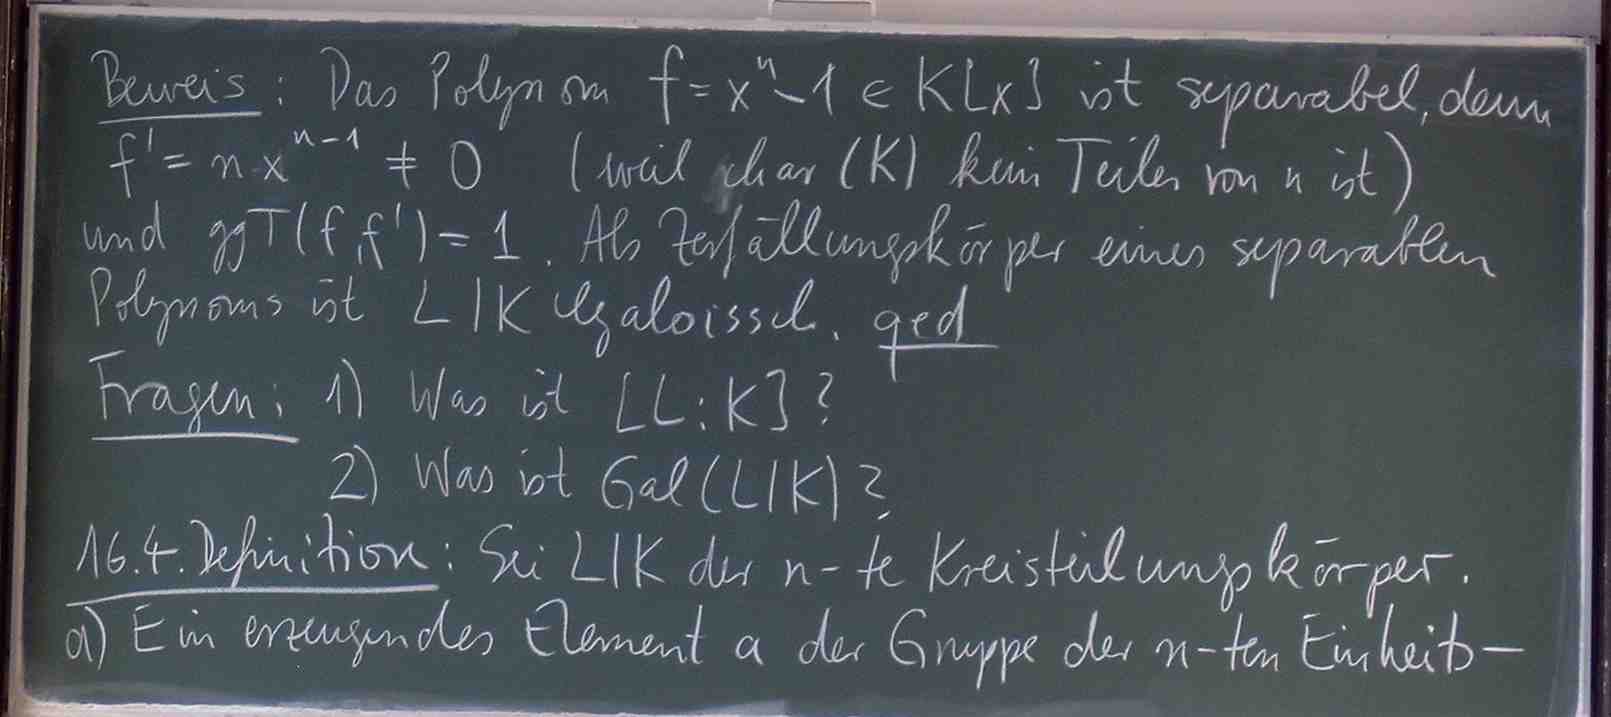 Beweis: Das Polynom f = xⁿ - 1 ∈ K[x] ist separabel, denn
f' = n·xⁿ⁻¹ ≠ 0 (weil char(K) kein Teiler von n ist)
und ggT(f,f') = 1. Als Zerfällungskörper eines separablen
Polynoms ist L|K galoissch. qed
Fragen: 1) Was ist [L:K]?
2) Was ist Gal(L|K)?
16.4. Definition: Sei L|K der n-te Kreisteilungskörper.
a) Ein erzeugendes Element a der Gruppe der n-ten Einheits-